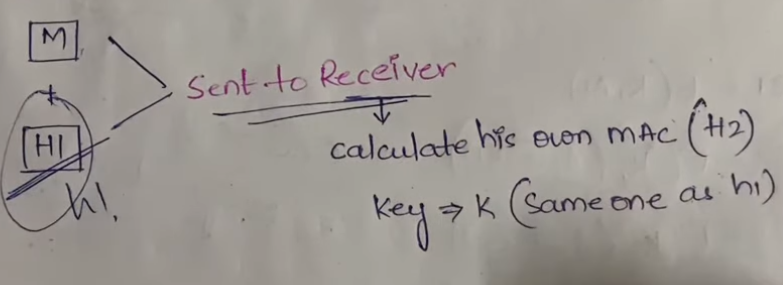 M
+
H1
h1.
Sent to Receiver
calculate his own MAC (H2)
Key ⇒ K (Same one as h1)